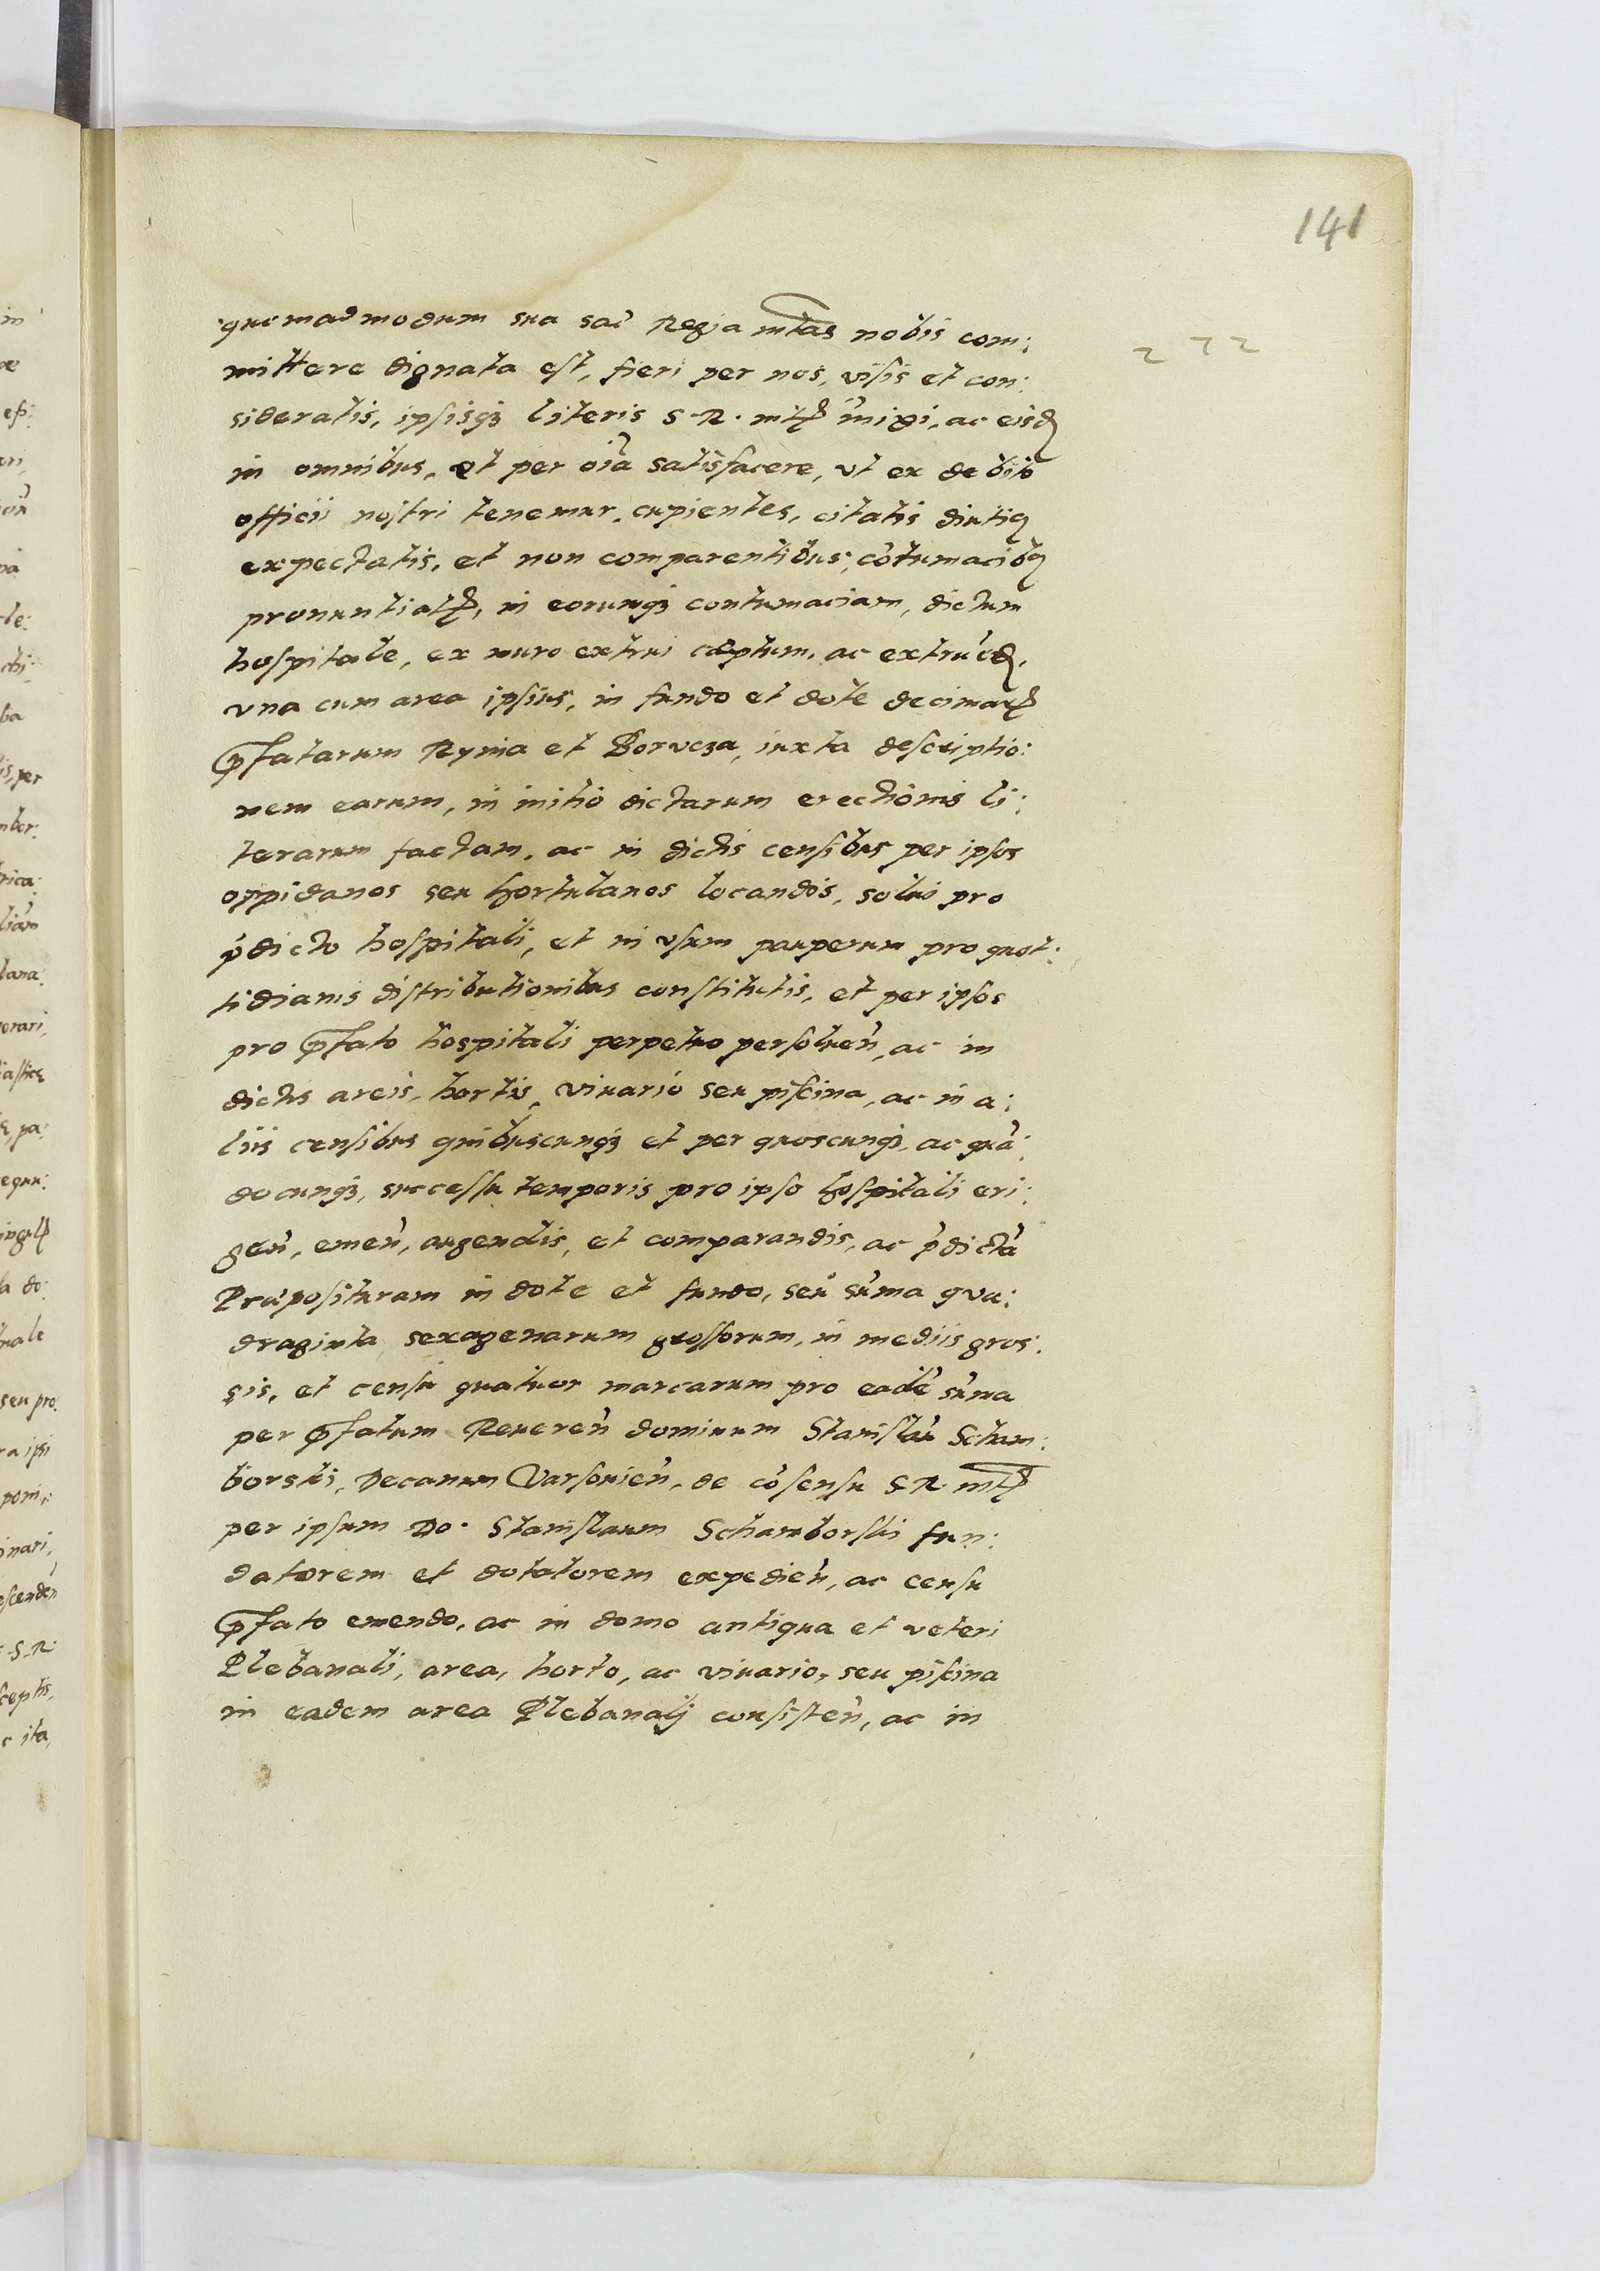 141
272
quemadmodum sua sac̃ Regia mtas nobis com:
mittere dignata est, fieri per nos, visis et con:
sideratis, ipsisqꝫ literis S. R. mtꝭ inixi, ac eisdꝫ
in omnibus, et per oi͠a satisfacere, vt ex debito
officii nostri tenemur, cupientes, citatis diutiꝰ
expectatis, et non comparentibus, cõtumacibꝰ
pronuntiatꝭ, in eorumqꝫ contumaciam, dictum
hospitale, ex muro extrui cæptum, ac extruẽdꝫ,
vna cum area ipsius, in fundo et dote decimarꝭ
p̱fatarum Rynia et Borvcza, iuxta descriptio:
nem earum, in initio dictarum erectionis li:
terarum factam, ac in dictis censibus per ipsos
oppidanos seu hortulanos locandis, solui pro
p̃dicto hospitali, et in vsum pauperum pro quot:
tidianis distributionibus constitutis, et per ipsos
pro p̱fato hospitali perpetuo persoluen̄, ac in
dictis areis, hortis, viuario seu piscina, ac in a:
liis censibus quibuscunqꝫ et per quoscunqꝫ, ac quã:
documqꝫ, successu temporis pro ipso hospitali eri:
gen̄, emen̄, augendis, et comparandis, ac p̃dictã
Præposituram in dote et fundo, seu sum̃a qua:
draginta sexagenarum grossorum, in mediis gros:
sis, et censu quatuor marcarum pro eadẽ sum̃a
per p̱fatum Reueren̄ dominum Stanislaũ Scham:
borski, Decanum Varsouien̄, de cõsensu S. R. mtꝭ
per ipsum Do. Stanislaum Schamborski fun:
datorem et dotatorem expedien̄, ac censu
p̱fato emendo, ac in domo antiqua et veteri
Plebanali, area, horto, ac viuario, seu piscina
in eadem area Plebanalj consisten̄, ac in